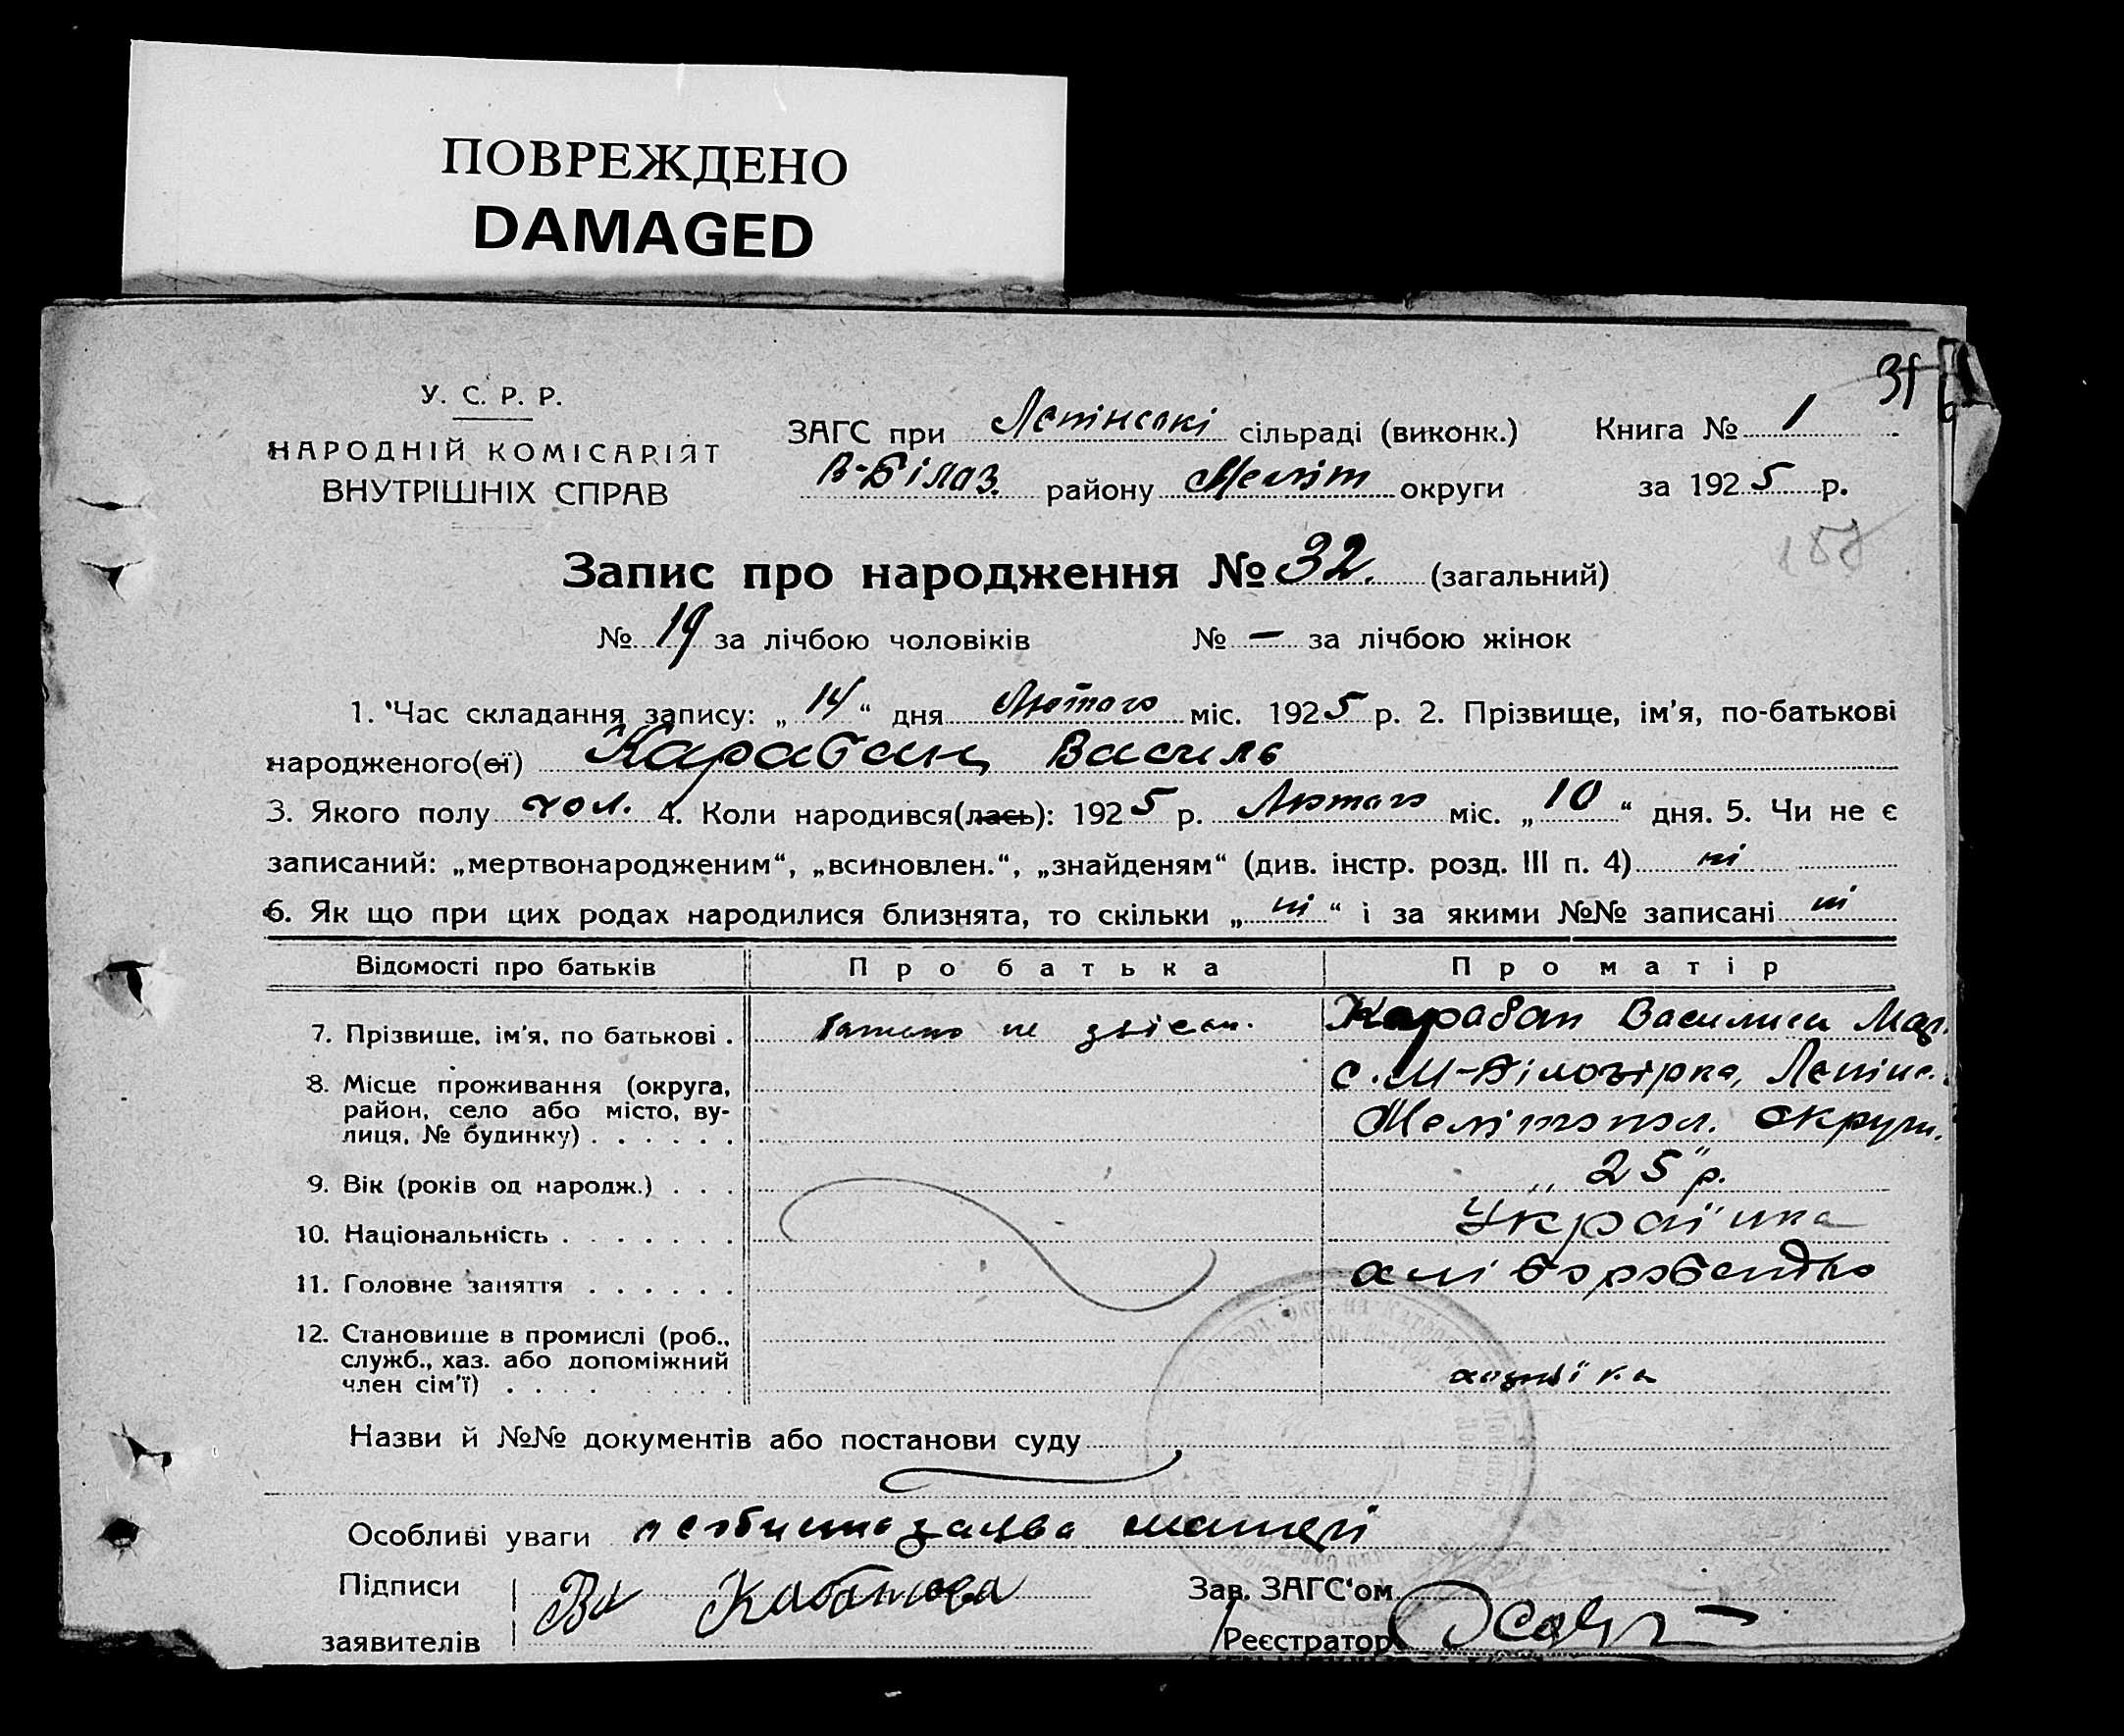 ПОВРЕЖДЕНО
DAMAGED
31
У. С. Р. Р.
НАРОДНІЙ КОМІСАРІЯТ
ВНУТРІШНІХ СПРАВ
ЗАГС при Лепінські сільраді (виконк.) Книга № 1
В-Білоз. району Меліт округи за 1925 р.
Запис про народження № 32. (загальний)
№ 19 за лічбою чоловіків № — за лічбою жінок
1. Час складання запису: „ 14 “ дня Лютого міс. 1925 р. 2. Прізвище, ім'я, по-батькові
народженого(ої) Карабан Василь
3. Якого полу чол. 4. Коли народився(лась): 1925 р. Лютого міс. „ 10 “ дня. 5. Чи не є
записаний: „мертвонародженим“, „всиновлен.“, „знайденям“ (див. інстр. розд. III п. 4) ні
6. Як що при цих родах народилися близнята, то скільки „ ні “ і за якими №№ записані ні
Відомості про батьків Про батька Про матір
7. Прізвище, ім'я, по батькові . не Карабан Василиса
8. Місце проживання (округа, с. М-Білозірка,
район, село або місто, ву- Мелітопол. округи.
лиця, № будинку) . . . . . .
9. Вік (років од народж.) . . . „ 25 “ р.
10. Національність . . . . . . . Українка
11. Головне заняття . . . . . . хліборобство
12. Становище в промислі (роб.,
служб., хаз. або допоміжний хазяйка
член сім'ї) . . . .
Назви й №№ документів або постанови суду
Особливі уваги особиста заява матері
Підписи Зав. ЗАГС'ом
заявителів Реєстратор